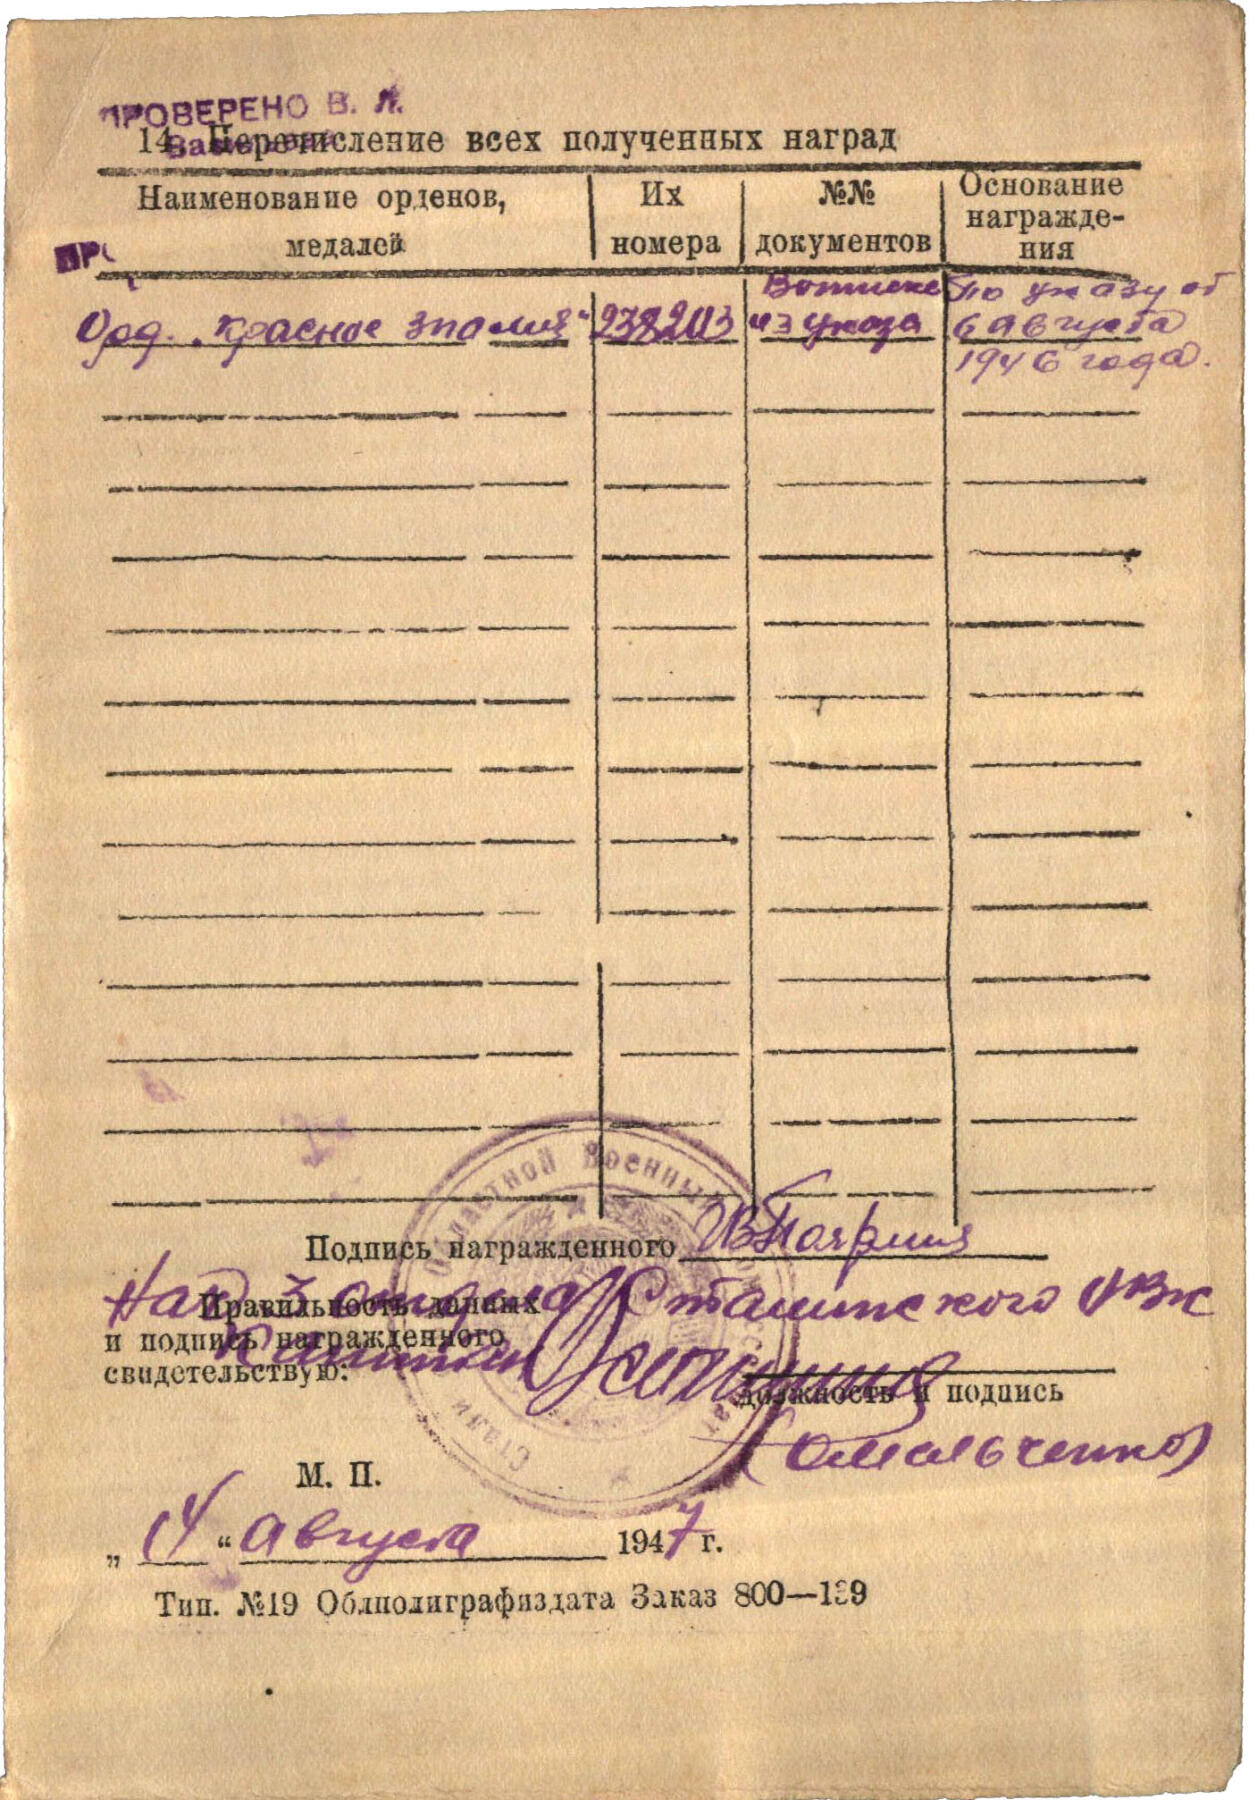 ПРОВЕРЕНО В. Л.
14. Перечисление всех полученных наград
Наименование орденов, медалей
Их номера
№№ документов
Основание награжде-
ния
Орд. „Красное знамя“ 238203 Выписка из указа По указу от
6 августа
1946 года.
Подпись награжденного
Нач 3 отдела Сталинского ОВК
Правильность данных
и подпись награжденного
свидетельствую:
должность и подпись
(Омельченко)
Областной Военный
М. П.
„ 14 “ августа 1947 г.
Тип. №19 Облполиграфиздата Заказ 800—139